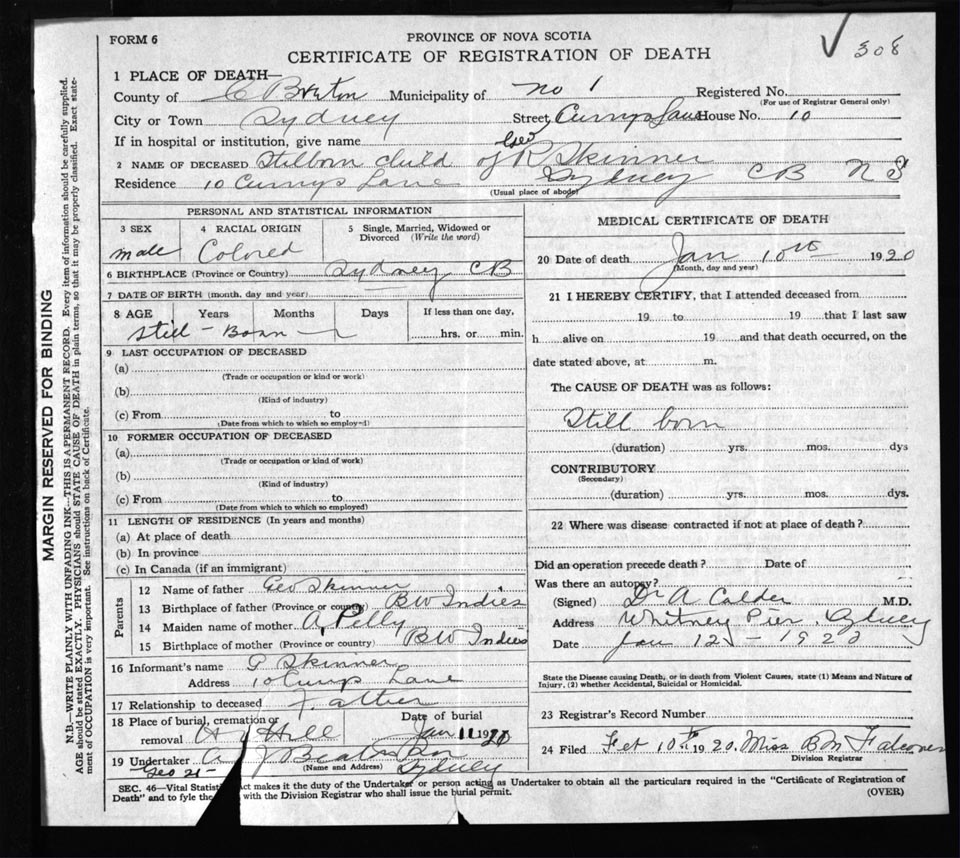 FORM 6
PROVINCE OF NOVA SCOTIA
308
CERTIFICATE OF REGISTRATION OF DEATH
1 PLACE OF DEATH—
County of C Breton Municipality of no 1 Registered No.
(For use of Registrar General only)
City or Town Sydney Street Currys Lane House No. 10
If in hospital or institution, give name
2 NAME OF DECEASED Stilborn child of Geo R Skinner
Residence 10 Currys Lane Sydney CB NS
(Usual place of abode)
PERSONAL AND STATISTICAL INFORMATION
3 SEX 4 RACIAL ORIGIN 5 Single, Married, Widowed or Divorced (Write the word)
male Colored
6 BIRTHPLACE (Province or Country) Sydney CB
7 DATE OF BIRTH (month, day and year)
8 AGE Years Months Days If less than one day,
Still - Born hrs. or min.
9 LAST OCCUPATION OF DECEASED
(a)
(Trade or occupation or kind or work)
(b)
(Kind of industry)
(c) From to
(Date from which to which so employed)
10 FORMER OCCUPATION OF DECEASED
(a)
(Trade or occupation or kind of work)
(b)
(Kind of industry)
(c) From to
(Date from which to which so employed)
11 LENGTH OF RESIDENCE (In years and months)
(a) At place of death
(b) In province
(c) In Canada (if an immigrant)
Parents
12 Name of father Geo Skinner
13 Birthplace of father (Province or country) BW Indies
14 Maiden name of mother A, Pelly
15 Birthplace of mother (Province or country) BW Indies
16 Informant's name G Skinner
Address 10 Currys Lane
17 Relationship to deceased Father
18 Place of burial, cremation or removal H Hill
Date of burial Jan 11 1920
19 Undertaker A J Beaton Son
(Name and Address) Sydney
Geo 21-
MEDICAL CERTIFICATE OF DEATH
20 Date of death Jan 10th 1920
(Month, day and year)
21 I HEREBY CERTIFY, that I attended deceased from
19 to 19 that I last saw
h alive on 19 and that death occurred, on the
date stated above, at m.
The CAUSE OF DEATH was as follows:
Still born
(duration) yrs. mos. dys
CONTRIBUTORY
(Secondary)
(duration) yrs. mos. dys.
22 Where was disease contracted if not at place of death?
Did an operation precede death? Date of
Was there an autopsy?
(Signed) Dr A Calder M.D.
Address Whitney Pier, Sydney
Date Jan 12 - 1920
State the Disease causing Death, or in death from Violent Causes, state (1) Means and Nature of
Injury, (2) whether Accidental, Suicidal or Homicidal.
23 Registrar's Record Number
24 Filed Fet 10th 1920. Miss B M Falconer
Division Registrar
SEC. 46—Vital Act makes it the duty of the Undertaker or person acting as Undertaker to obtain all the particulars required in the "Certificate of Registration of
Death" and to fyle the with the Division Registrar who shall issue the burial permit. (OVER)
MARGIN RESERVED FOR BINDING
N.B.—WRITE PLAINLY WITH UNFADING INK—THIS IS A PERMANENT RECORD. Every item of information should be carefully supplied.
AGE should be stated EXACTLY. PHYSICIANS should STATE CAUSE OF DEATH in plain terms, so that it may be properly classified. Exact state-
ment of OCCUPATION is very important. See instructions on back of Certificate.